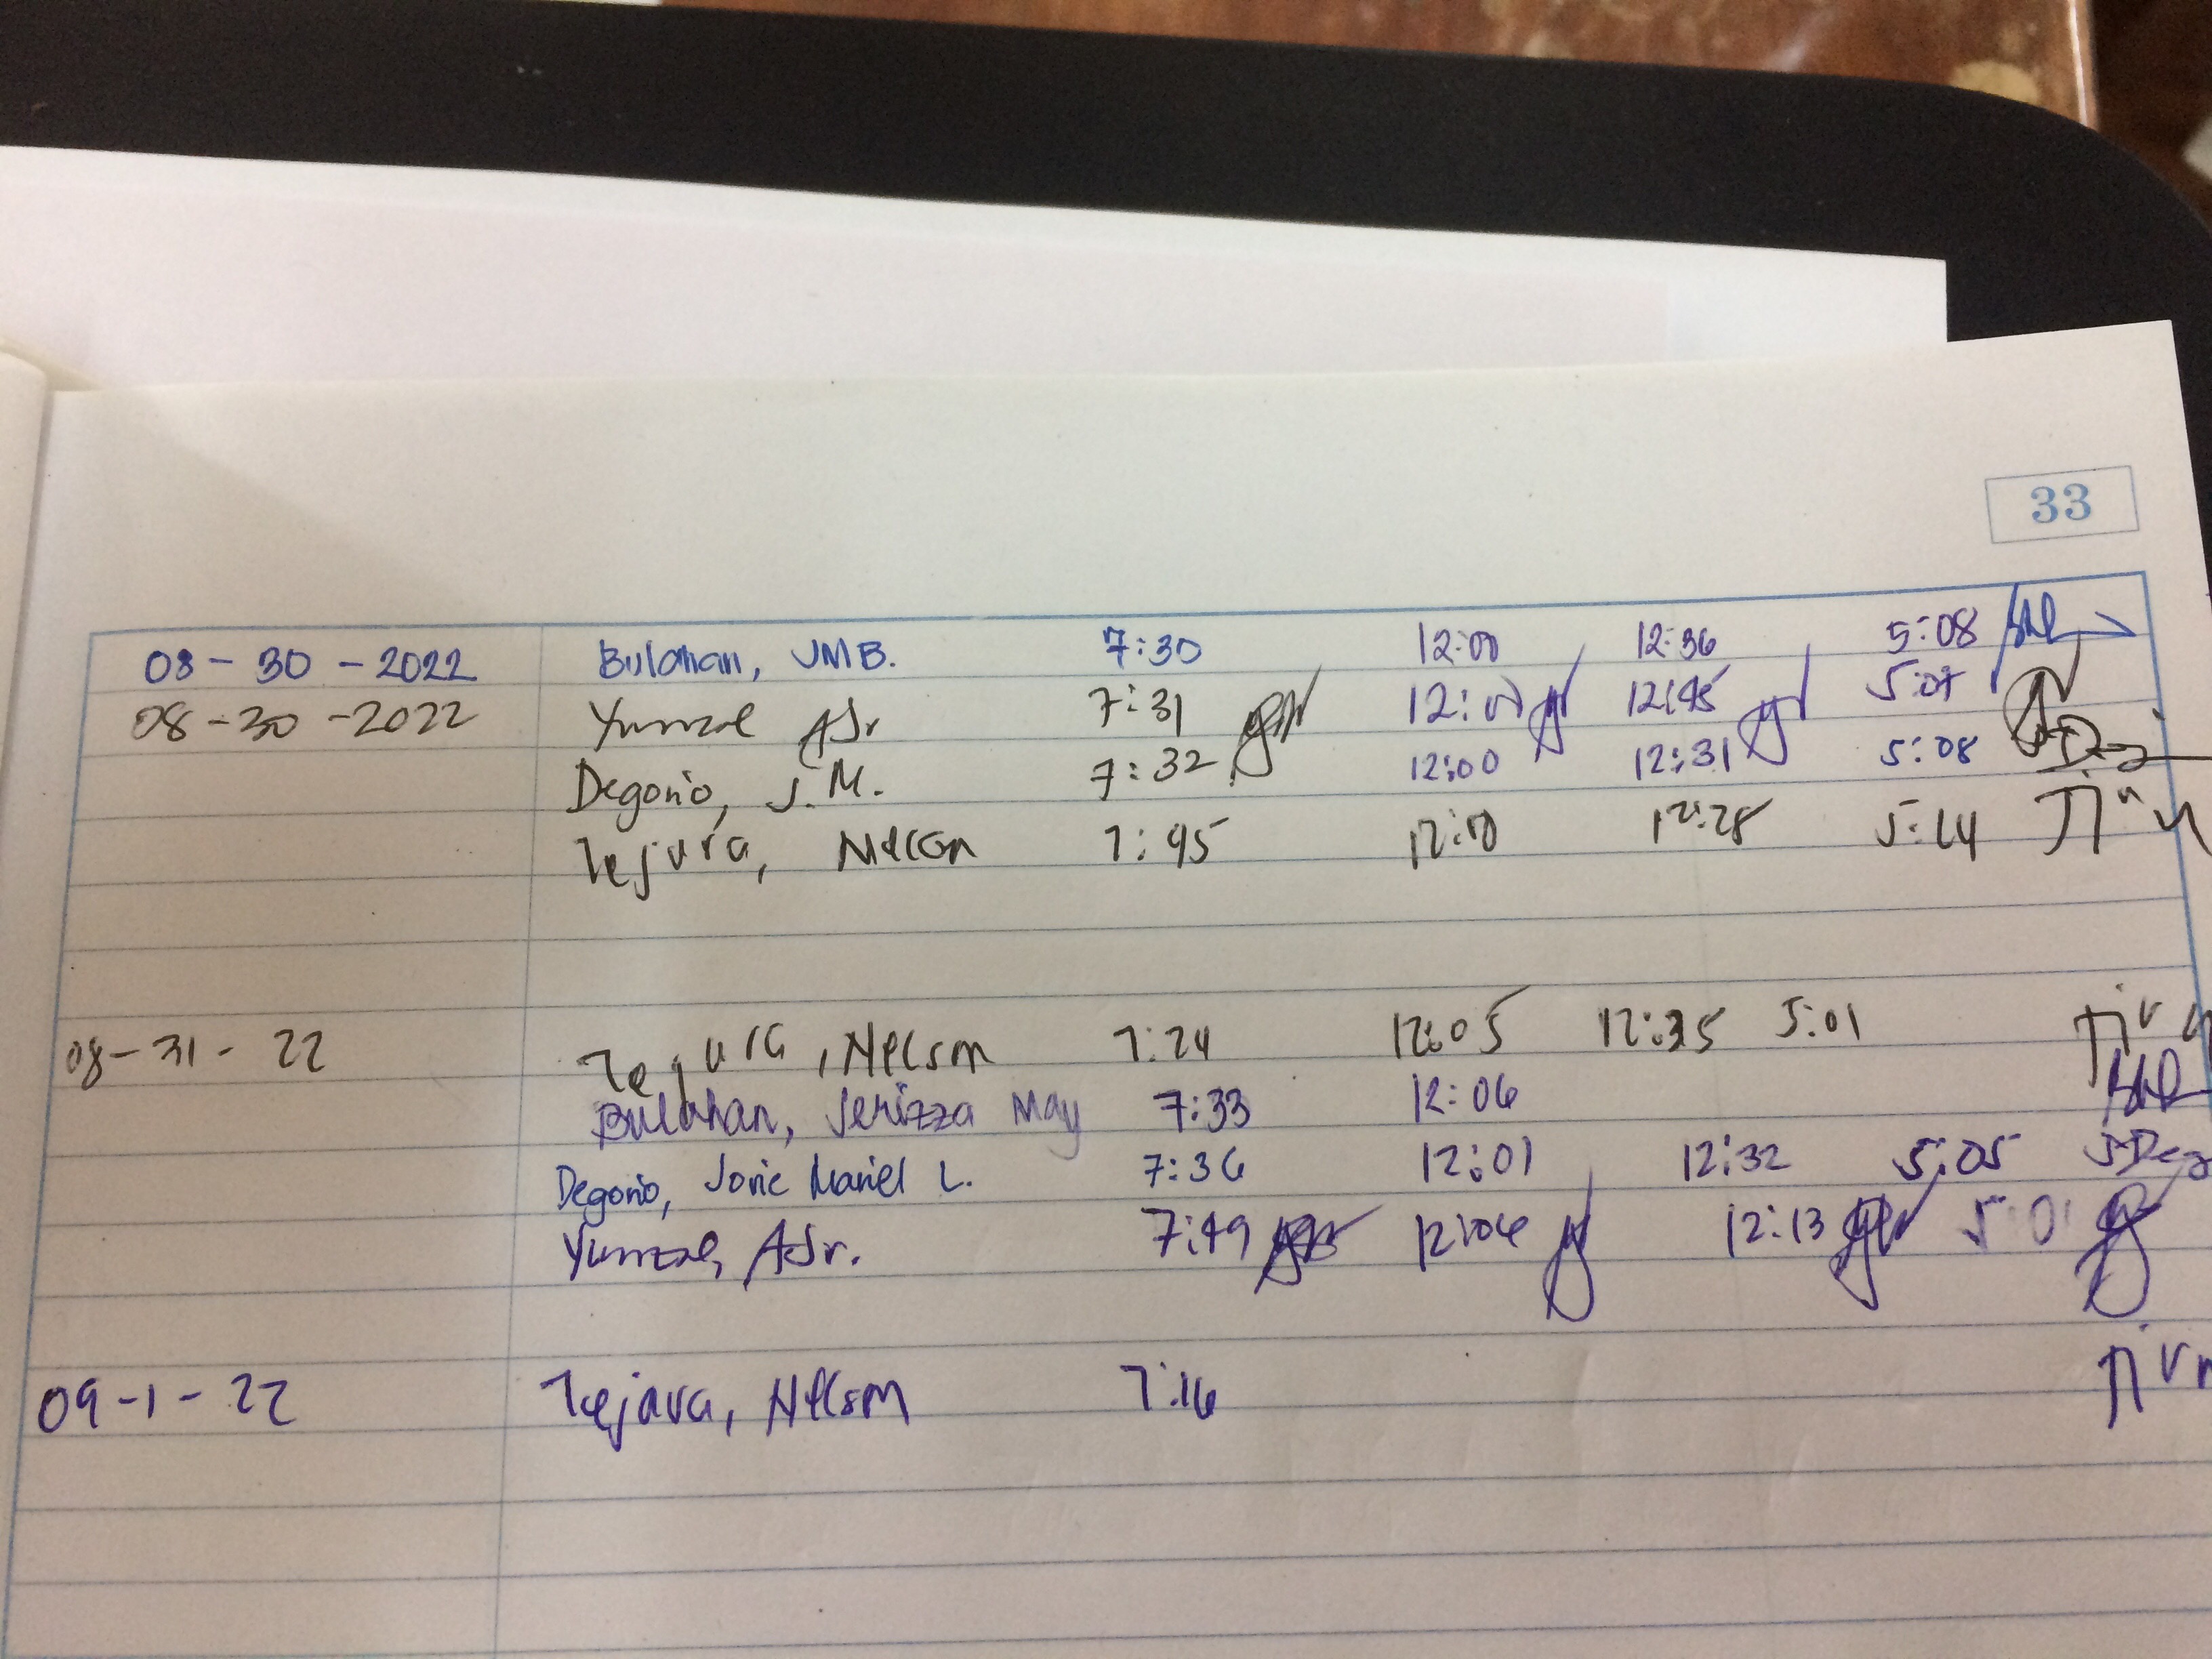 33
08-30-2022 Bulahan, JMB. 7:30 12:00 12:36 5:08
08-30-2022 Yumzal AJr 7:31 12:00 12:45 5:07
Degorio, J.M. 7:32 12:00 12:31 5:08
Tejura, Nelson 7:45 12:10 12:28 5:14
08-31-22 Tejura, Nelson 7:24 12:05 12:35 5:01
Bulahan, Jerizza May 7:33 12:06
Degorio, Joric Mariel L. 7:36 12:01 12:32 5:05
Yumzal, AJr. 7:49 12:06 12:13 5:01
09-1-22 Tejara, Nelson 7:16